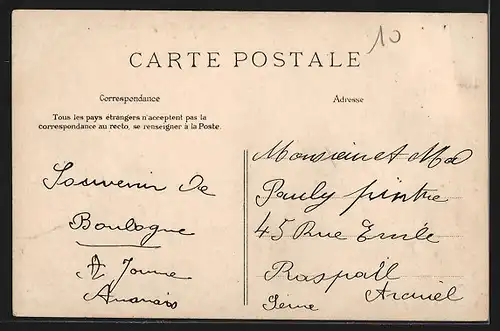 10
CARTE POSTALE
Correspondance
Adresse
Tous les pays étrangers n'acceptent pas la
correspondance au recto, se renseigner à la Poste.
Souvenir de
Boulogne
A
Monsieur et Md
Pauly pintre
45 Rue Emile
Raspail
Seine Arcueil